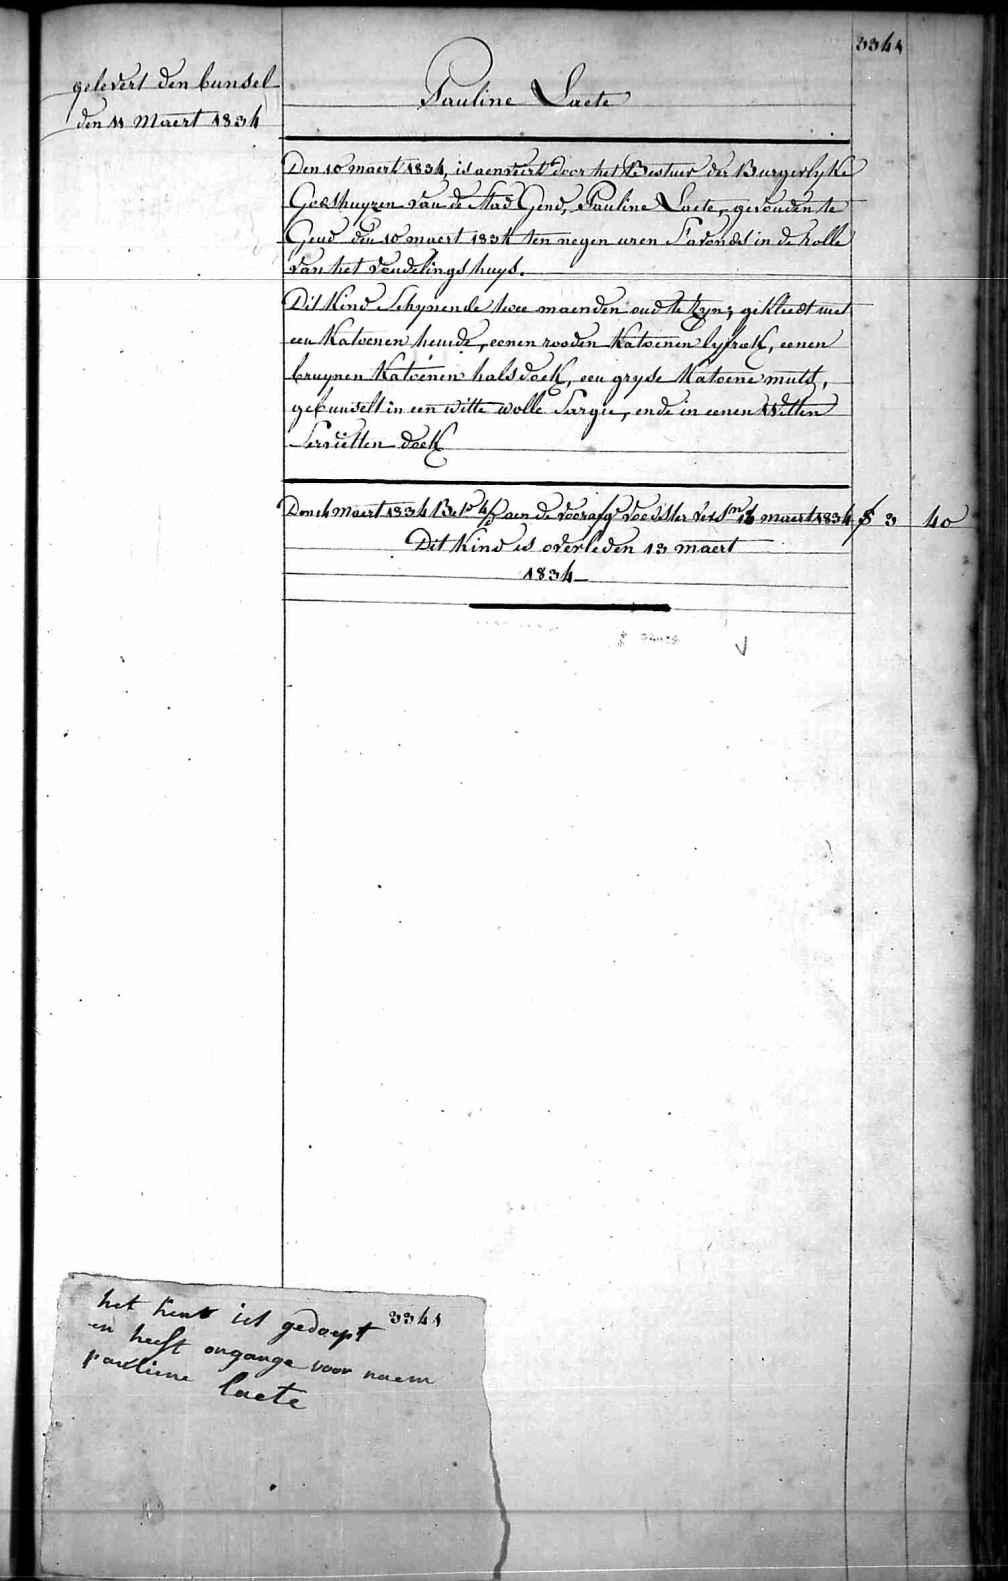 3341
gelevert den bunsel
den 11 Maert 1834
Pauline Laete
Den 10 maert 1834, is aenveert door het Bestuer der Burgerlyke
Godshuyzen van de Stad Gend, Pauline Laete, gevonden te
Gend den 10 maert 1834 ten negen uren S'avonds in de rolle
van het vondelings huys.
Dit Kind Schynende twee maenden oud te Zyn; gekleedt met
een Katoenen hemde, eenen rooden Katoenen lyfrok, eenen
bruynen Katoenen halsdoek, een gryse Katoene muts,
gebunselt in een witte wolle Sargie, ende in eenen Witten
Servietten doek
Den 14 maert 1834 aen de voedster maert 1834 3 40
Dit Kind is overleden 13 maert
1834
3341
het kint ist gedoept
en heeft ongange voor naem
pauliene laete